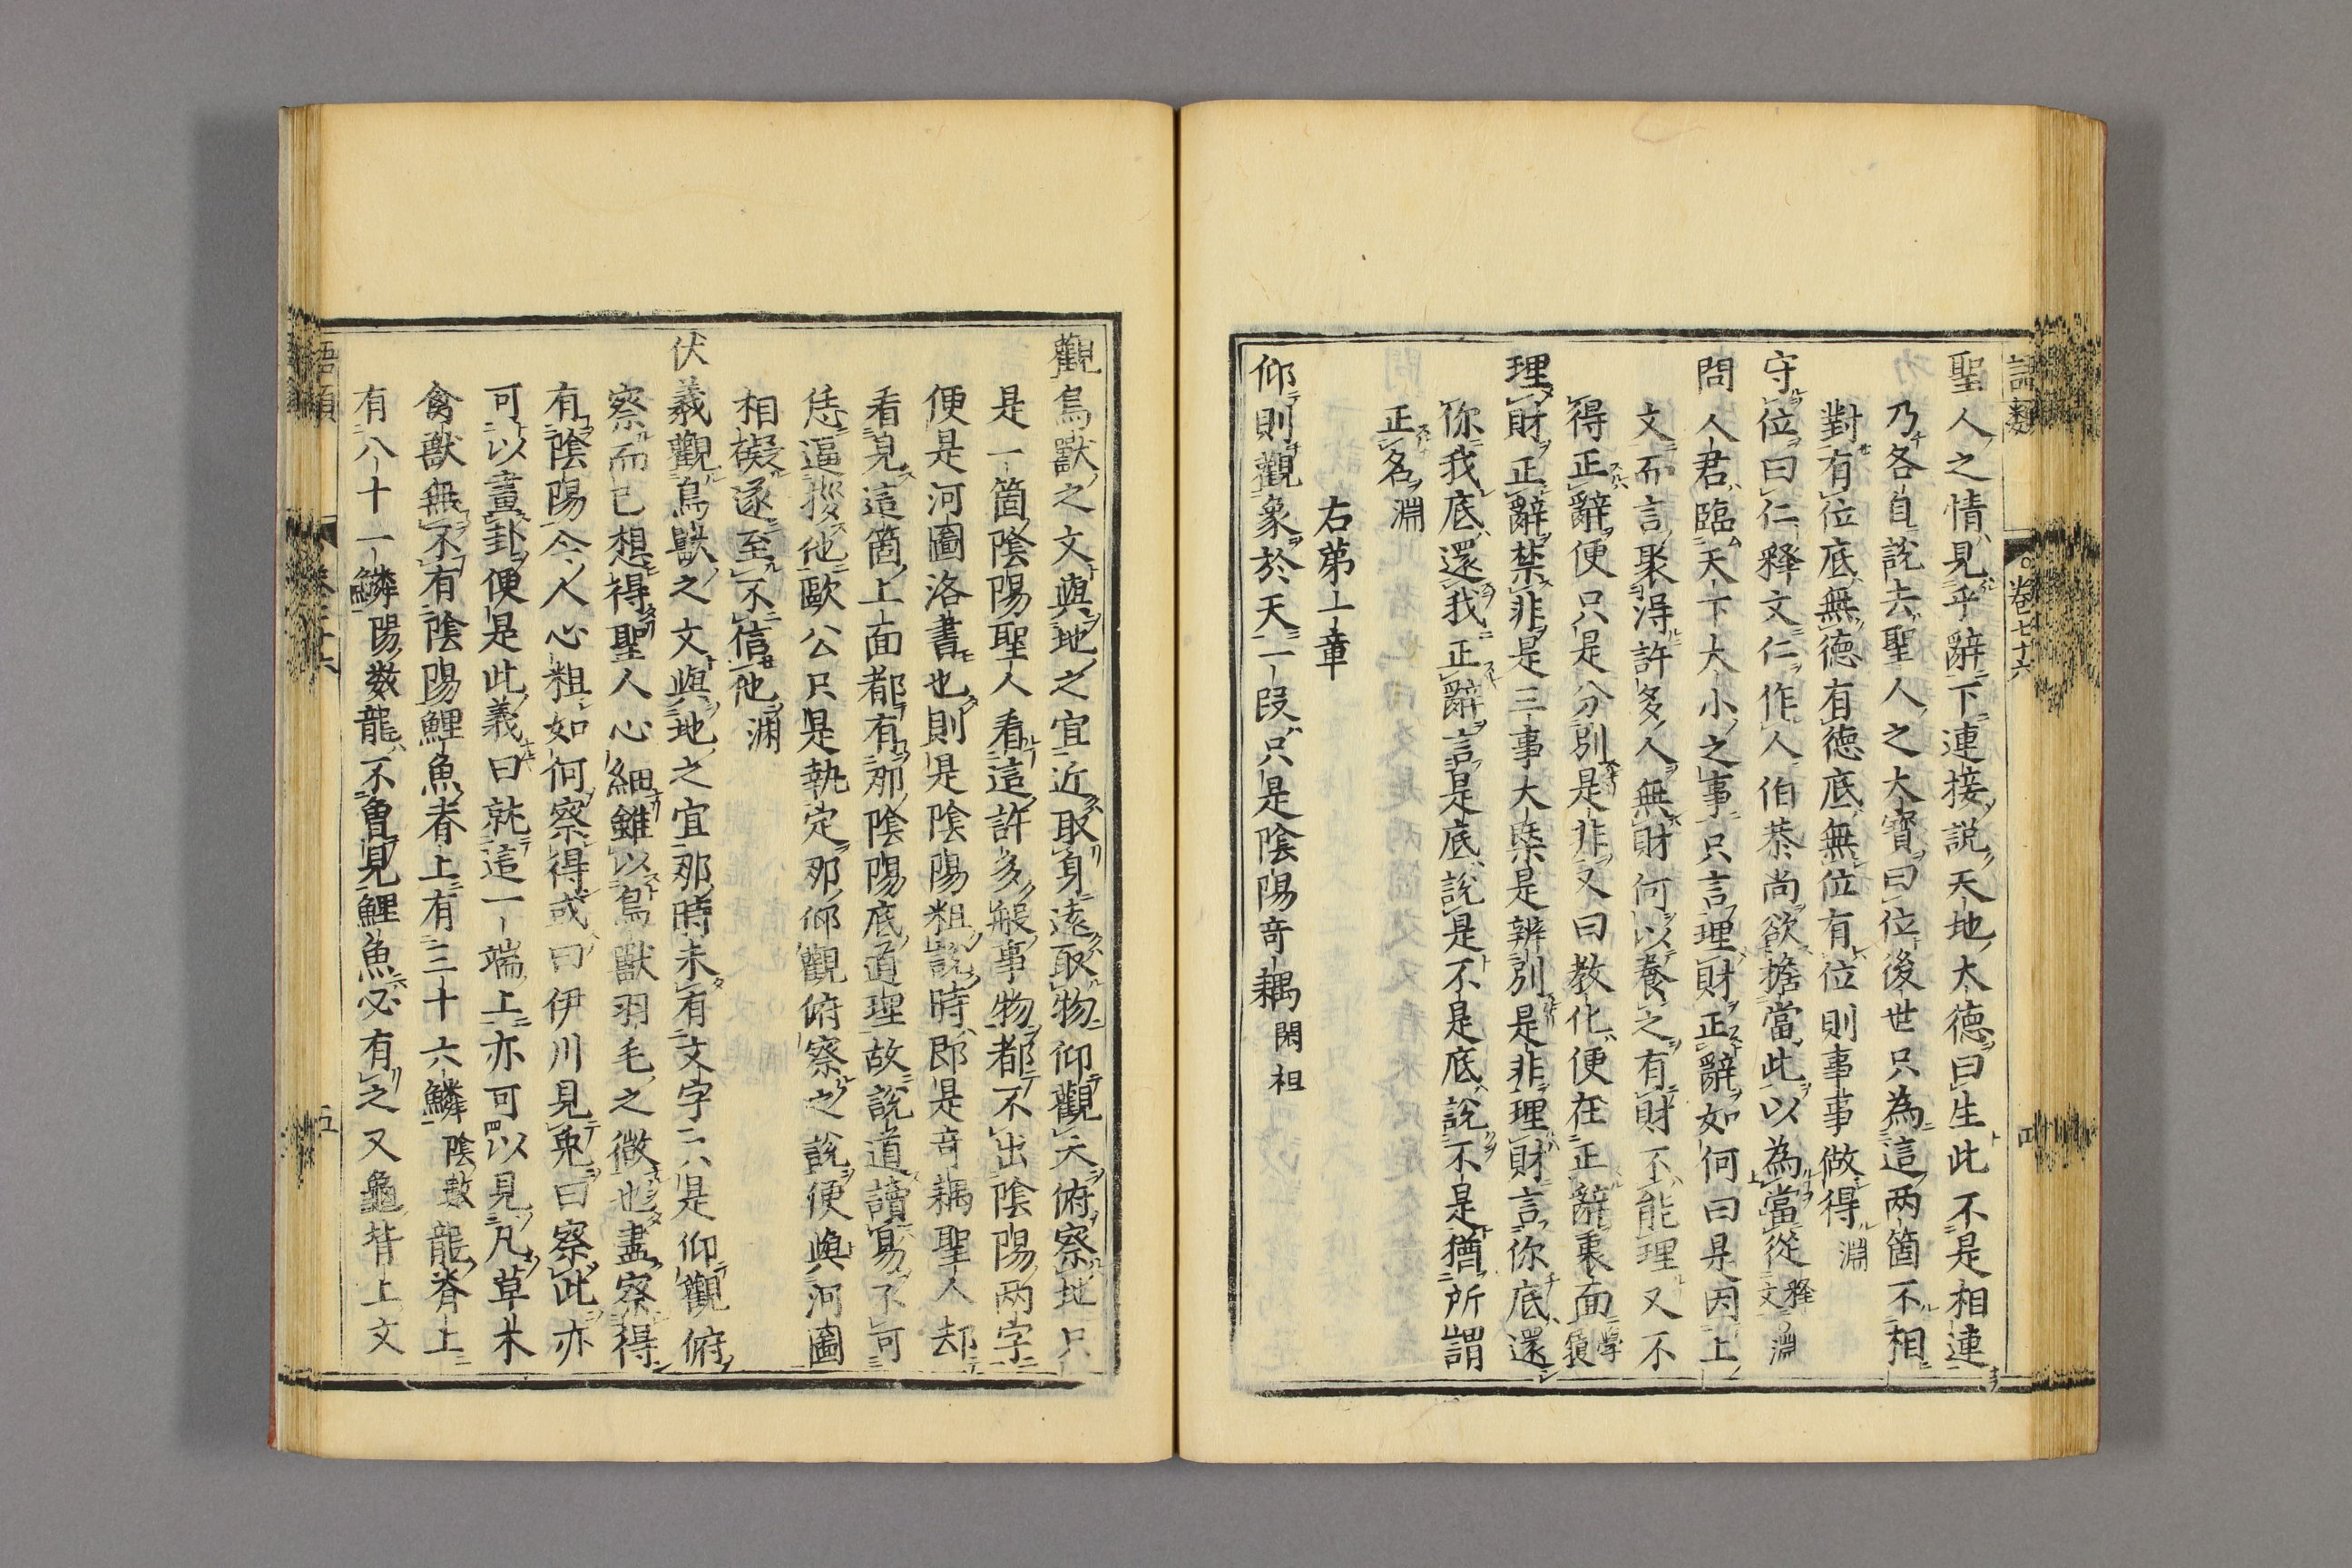 語類
卷七十六
四
聖人之情見乎辭下連接説天地大德曰生此不是相連
乃各自說去聖人之大寶曰位後世只為這两箇不相
對有位底無德有德底無位有位則事事做得淵
守位曰仁釋文仁作人伯恭尚欲擔當此以為當從釋文淵
問人君臨天下大小之事只言理財正辭如何曰是因上
文而言聚得許多人無財何以養之有財不能理又不
得正辭便只是分別是非又曰教化便在正辭裏面學履
理財正辭禁非是三事大槩是辨別是非理財言你底還
你我底還我正辭言是底說是不是底說不是猶所謂
正名淵
右第一章
仰則觀象於天一段只是陰陽奇耦閎祖
觀鳥獸之文與地之宜近取身遠取物仰觀天俯察地只
是一箇陰陽聖人看這許多般事物都不出陰陽两字
便是河圖洛書也則是陰陽粗說時即是奇耦聖人却
看見這箇上面都有那陰陽底道理故說道讀易不可
恁逼拶他歐公只是執定那仰觀俯察之說便與河圖
相礙遂至不信他渊
伏羲觀鳥獸之文與地之宜那時未有文字只是仰觀俯
察而已想得聖人心細雖以鳥獸羽毛之微也盡察得
有陰陽今人心粗如何察得或曰伊川見兎曰察此亦
可以畫卦便是此義曰就這一端上亦可以見凡草木
禽獸無不有陰陽鯉魚脊上有三十六鱗陰數龍脊上
有八十一鱗陽数龍不曾見鯉魚必有之又龜背上文
語類
五